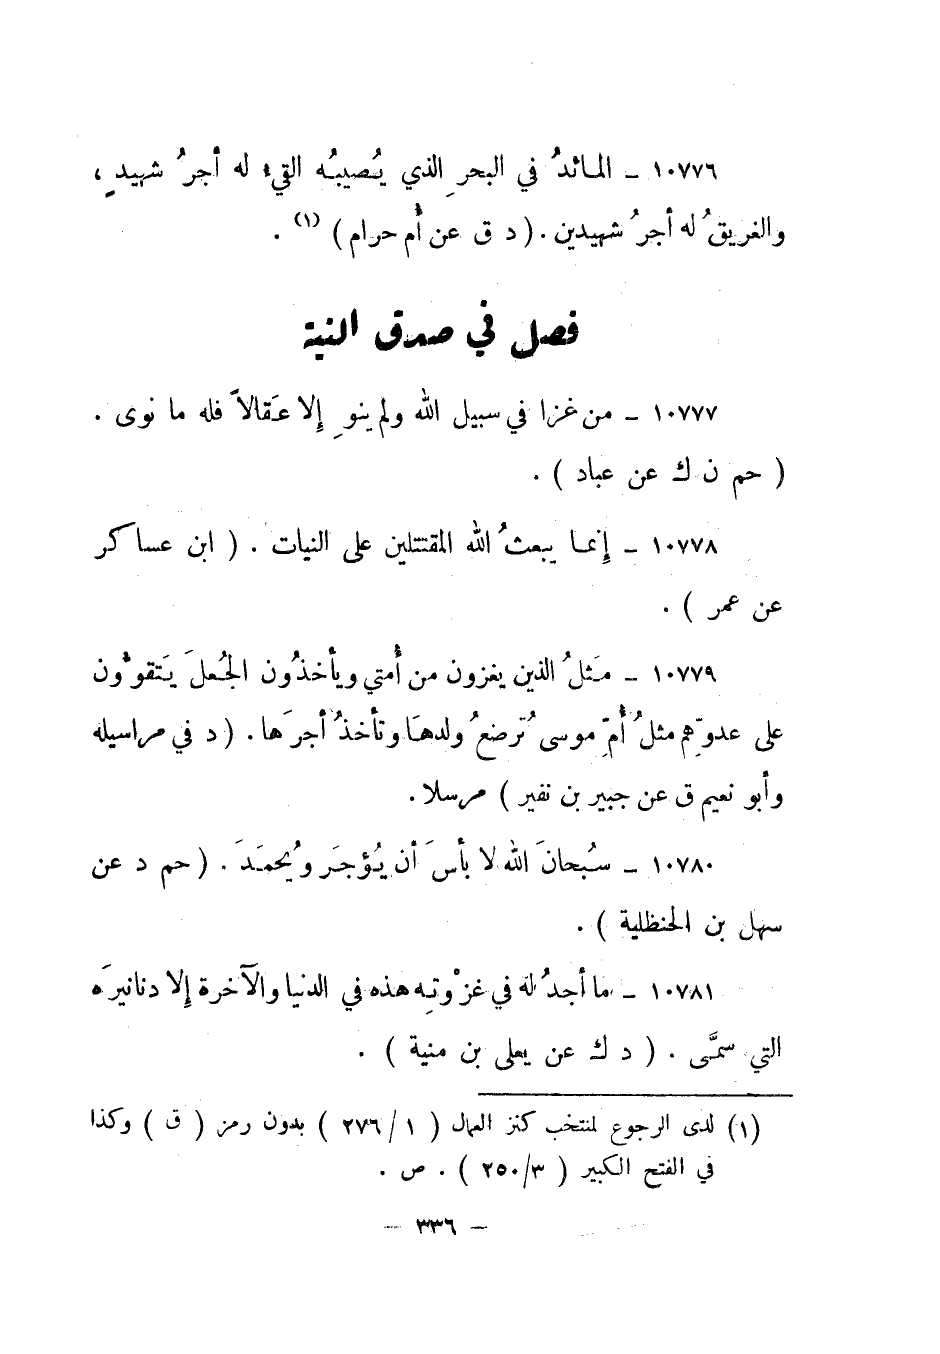 ١٠٧٧٦ ـ المائدُ في البحرِ الذي يُصيبُه القيء له أجرُ شهيدٍ ،
والغريقُ له أجرُ شهيدين . ( د ق عن أُم حرام ) (١) .
فصل في صدق النية
١٠٧٧٧ ـ من غزا في سبيل الله ولم ينوِ إلا عقالاً فله ما نوى .
( حم ن ك عن عباد ) .
١٠٧٧٨ ـ إنما يبعثُ الله المقتتلين على النيات . ( ابن عساكر
عن عمر ) .
١٠٧٧٩ ـ مَثلُ الذين يغزون من أُمتي ويأخذُون الجُعلَ يَتقوّون
على عدوِّهم مثلُ أُمِّ موسى تُرضعُ ولدها وتأخذُ أجرَها . ( د في مراسيله
وأبو نعيم ق عن جبير بن نفير ) مرسلا .
١٠٧٨٠ ـ سُبحانَ الله لا بأسَ أن يُؤجَر ويُحمَدَ . ( حم د عن
سهل بن الحنظلية ) .
١٠٧٨١ ـ ما أجدُ له في غزْوتِه هذه في الدنيا والآخرة إلا دنانيرَه
التي سمَّى . ( د ك عن يعلى بن منية ) .
(١) لدى الرجوع لمنتخب كنز العمال ( ١ / ٢٧٦ ) بدون رمز ( ق ) وكذا
في الفتح الكبير ( ٣/٢٥٠ ) . ص .
— ٣٣٦ —